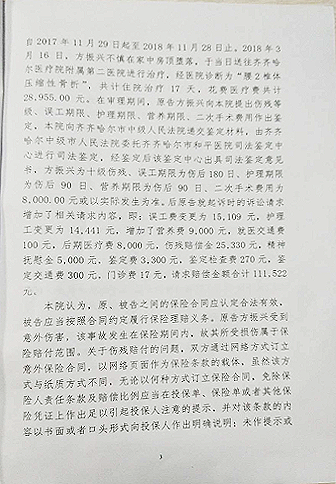 自 2017 年 11 月 29 日起至 2018 年 11 月 28 日止。2018 年 3
月 16 日，方振兴不慎在家中房顶堕落，于当日送往齐齐哈
尔医学院附属第二医院进行治疗，经医院诊断为“腰 2 椎体
压缩性骨折”，共计住院治疗 17 天，花费医疗费共计
28,955.00 元。在审理期间，原告方振兴向本院提出伤残等
级、误工期限、护理期限、营养期限、二次手术费用作出鉴
定，本院向齐齐哈尔市中级人民法院递交鉴定材料，由齐齐
哈尔中级市人民法院委托齐齐哈尔市和平医院司法鉴定中
心进行司法鉴定，经鉴定后该鉴定中心出具司法鉴定意见
书，方振兴为十级伤残、误工期限为伤后 180 日、护理期限
为伤后 90 日、营养期限为伤后 90 日、二次手术费用为
8,000.00 元或以实际发生为准。后原告就起诉时的诉讼请求
增加了相关请求内容，即：误工费变更为 15,109 元，护理
工变更为 14,441 元，增加了营养费 9,000 元，就医交通费
100 元，后期医疗费 8,000 元，伤残赔偿金 25,330 元，精神
抚慰金 5,000 元，鉴定费 3,300 元，鉴定检查费 270 元，鉴
定交通费 300 元，门诊费 17 元，请求赔偿金额合计 111,522
元。
本院认为，原、被告之间的保险合同应认定合法有效，
被告应当按照合同约定履行保险理赔义务。原告方振兴受到
意外伤害，该事故发生在保险期间内，故其所受损伤属于保
险赔付范围。关于伤残赔付的问题，双方通过网络方式订立
意外保险合同，以网络页面作为保险条款的载体，虽然该方
式与纸质方式不同，无论以何种方式订立保险合同，免除保
险人责任条款及赔偿比例应当在投保单、保险单或者其他保
险凭证上作出足以引起投保人注意的提示，并对该条款的内
容以书面或者口头形式向投保人作出明确说明；未作提示或
3